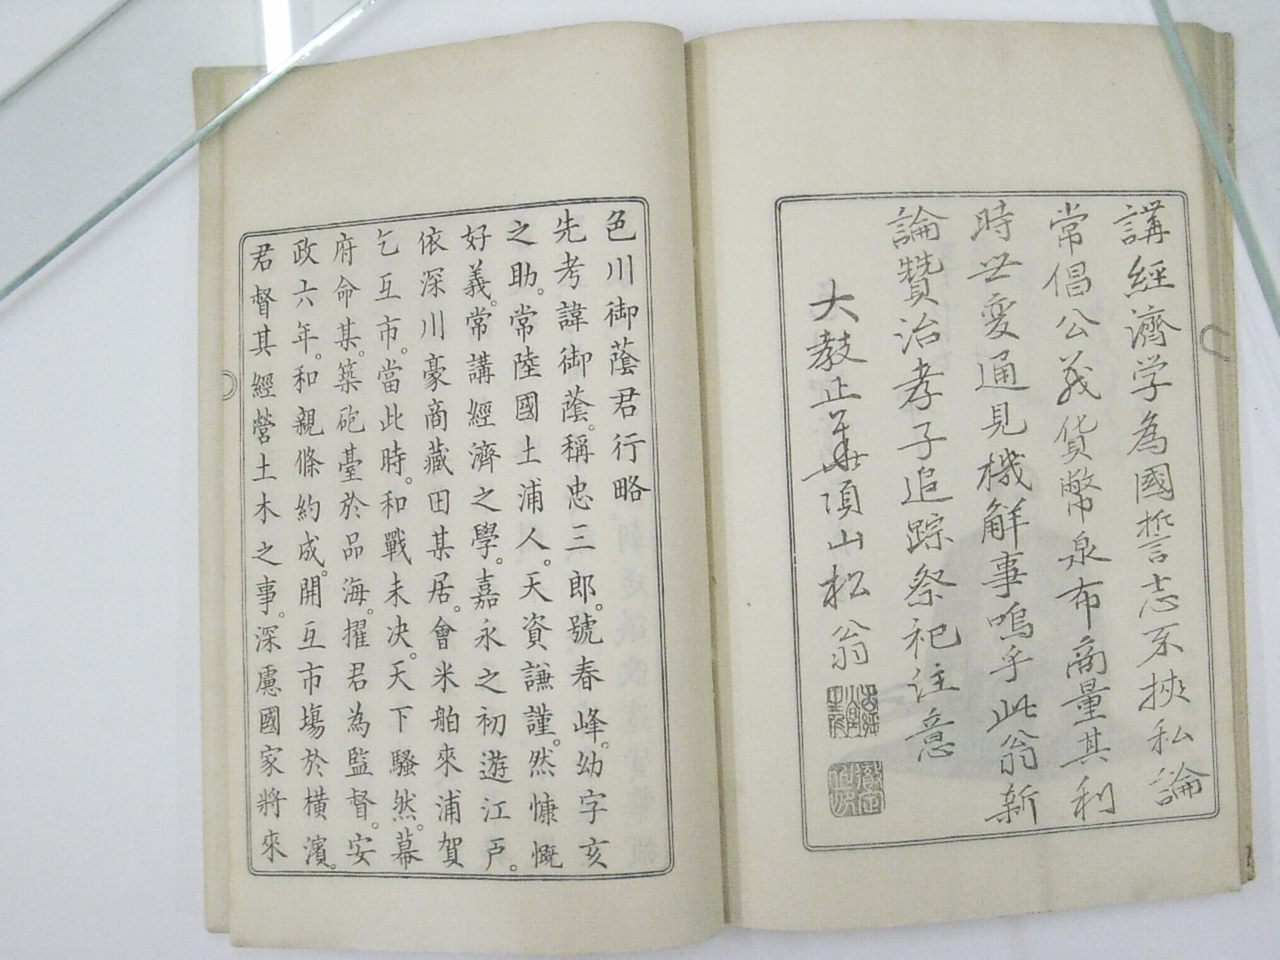 講經濟学為國誓志不挾私論
常倡公義貨幣泉布商量其利
時世変通見機解事嗚乎此翁新
論贊治孝子追踪祭祀注意
大教正華頂山松翁
色川御蔭君行略
先考諱御蔭。稱忠三郎。號春峰。幼字亥
之助。常陸國土浦人。天資謙謹。然慷慨
好義。常講經濟之學。嘉永之初遊江戸。
依深川豪商藏田某居。會米舶來浦賀
乞互市。當此時。和戰未决。天下騷然。幕
府命某。築砲臺於品海。擢君為監督。安
政六年。和親條約成。開互市場於橫濱。
君督其經營土木之事。深慮國家將來